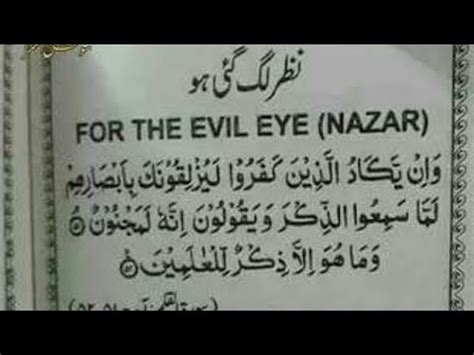 نظر لگ گئی ہو
FOR THE EVIL EYE (NAZAR)
وَاِنْ يَّكَادُ الَّذِيْنَ كَفَرُوْا لَيُزْلِقُوْنَكَ بِاَبْصَارِهِمْ
لَمَّا سَمِعُوا الذِّكْرَ وَيَقُوْلُوْنَ اِنَّهٗ لَمَجْنُوْنٌ ۝
وَمَا هُوَ اِلَّا ذِكْرٌ لِّلْعٰلَمِيْنَ ۝